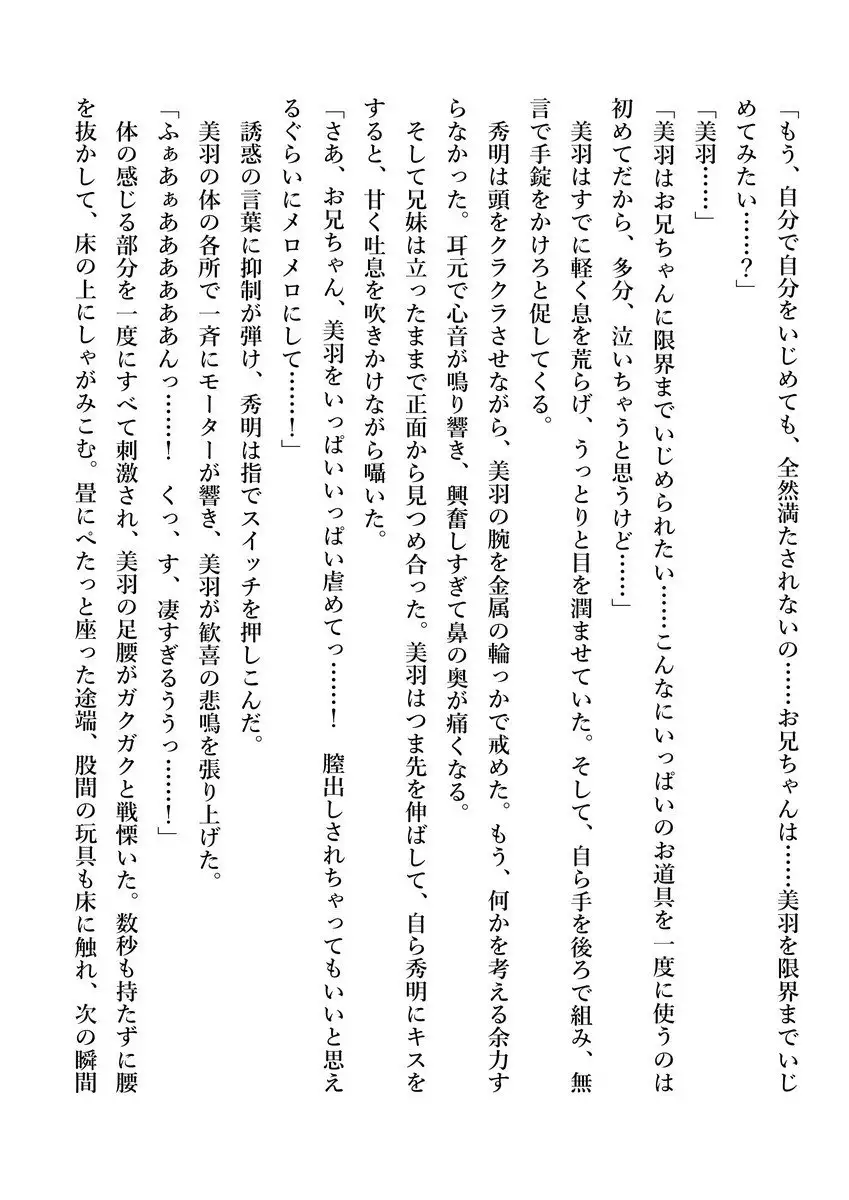 「もう、自分で自分をいじめても、全然満たされないの……お兄ちゃんは……美羽を限界までいじ
めてみたい……？」
「美羽……」
「美羽はお兄ちゃんに限界までいじめられたい……こんなにいっぱいのお道具を一度に使うのは
初めてだから、多分、泣いちゃうと思うけど……」
美羽はすでに軽く息を荒らげ、うっとりと目を潤ませていた。そして、自ら手を後ろで組み、無
言で手錠をかけろと促してくる。
秀明は頭をクラクラさせながら、美羽の腕を金属の輪っかで戒めた。もう、何かを考える余力す
らなかった。耳元で心音が鳴り響き、興奮しすぎて鼻の奥が痛くなる。
そして兄妹は立ったままで正面から見つめ合った。美羽はつま先を伸ばして、自ら秀明にキスを
すると、甘く吐息を吹きかけながら囁いた。
「さあ、お兄ちゃん、美羽をいっぱいいっぱい虐めてっ……！　膣出しされちゃってもいいと思え
るぐらいにメロメロにして……！」
誘惑の言葉に抑制が弾け、秀明は指でスイッチを押しこんだ。
美羽の体の各所で一斉にモーターが響き、美羽が歓喜の悲鳴を張り上げた。
「ふぁあぁああああああんっ……！　くっ、す、凄すぎるううっ……！」
体の感じる部分を一度にすべて刺激され、美羽の足腰がガクガクと戦慄いた。数秒も持たずに腰
を抜かして、床の上にしゃがみこむ。畳にぺたっと座った途端、股間の玩具も床に触れ、次の瞬間